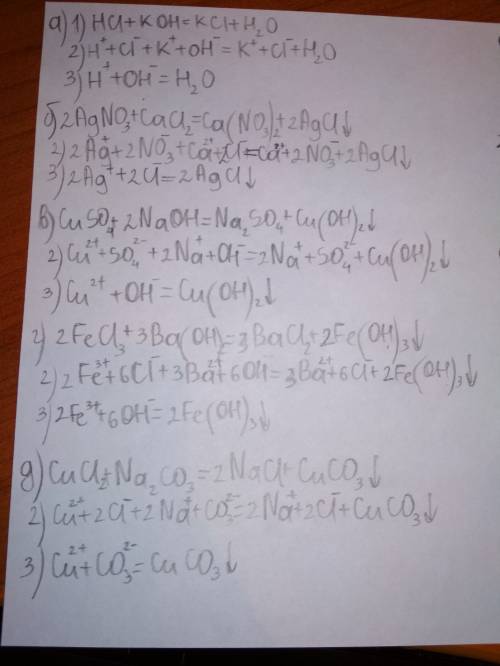 а) 1) HCl+KOH=KCl+H₂O
2) H⁺+Cl⁻+K⁺+OH⁻=K⁺+Cl⁻+H₂O
3) H⁺+OH⁻=H₂O
б) 2AgNO₃+CaCl₂=Ca(NO₃)₂+2AgCl↓
2) 2Ag⁺+2NO₃⁻+Ca²⁺+2Cl⁻=Ca²⁺+2NO₃⁻+2AgCl↓
3) 2Ag⁺+2Cl⁻=2AgCl↓
в) CuSO₄+2NaOH=Na₂SO₄+Cu(OH)₂↓
2) Cu²⁺+SO₄²⁻+2Na⁺+OH⁻=2Na⁺+SO₄²⁻+Cu(OH)₂↓
3) Cu²⁺+OH⁻=Cu(OH)₂↓
г) 2FeCl₃+3Ba(OH)₂=3BaCl₂+2Fe(OH)₃↓
2) 2Fe³⁺+6Cl⁻+3Ba²⁺+6OH⁻=3Ba²⁺+6Cl⁻+2Fe(OH)₃↓
3) 2Fe³⁺+6OH⁻=2Fe(OH)₃↓
д) CuCl₂+Na₂CO₃=2NaCl+CuCO₃↓
2) Cu²⁺+2Cl⁻+2Na⁺+CO₃²⁻=2Na⁺+2Cl⁻+CuCO₃↓
3) Cu²⁺+CO₃²⁻=CuCO₃↓